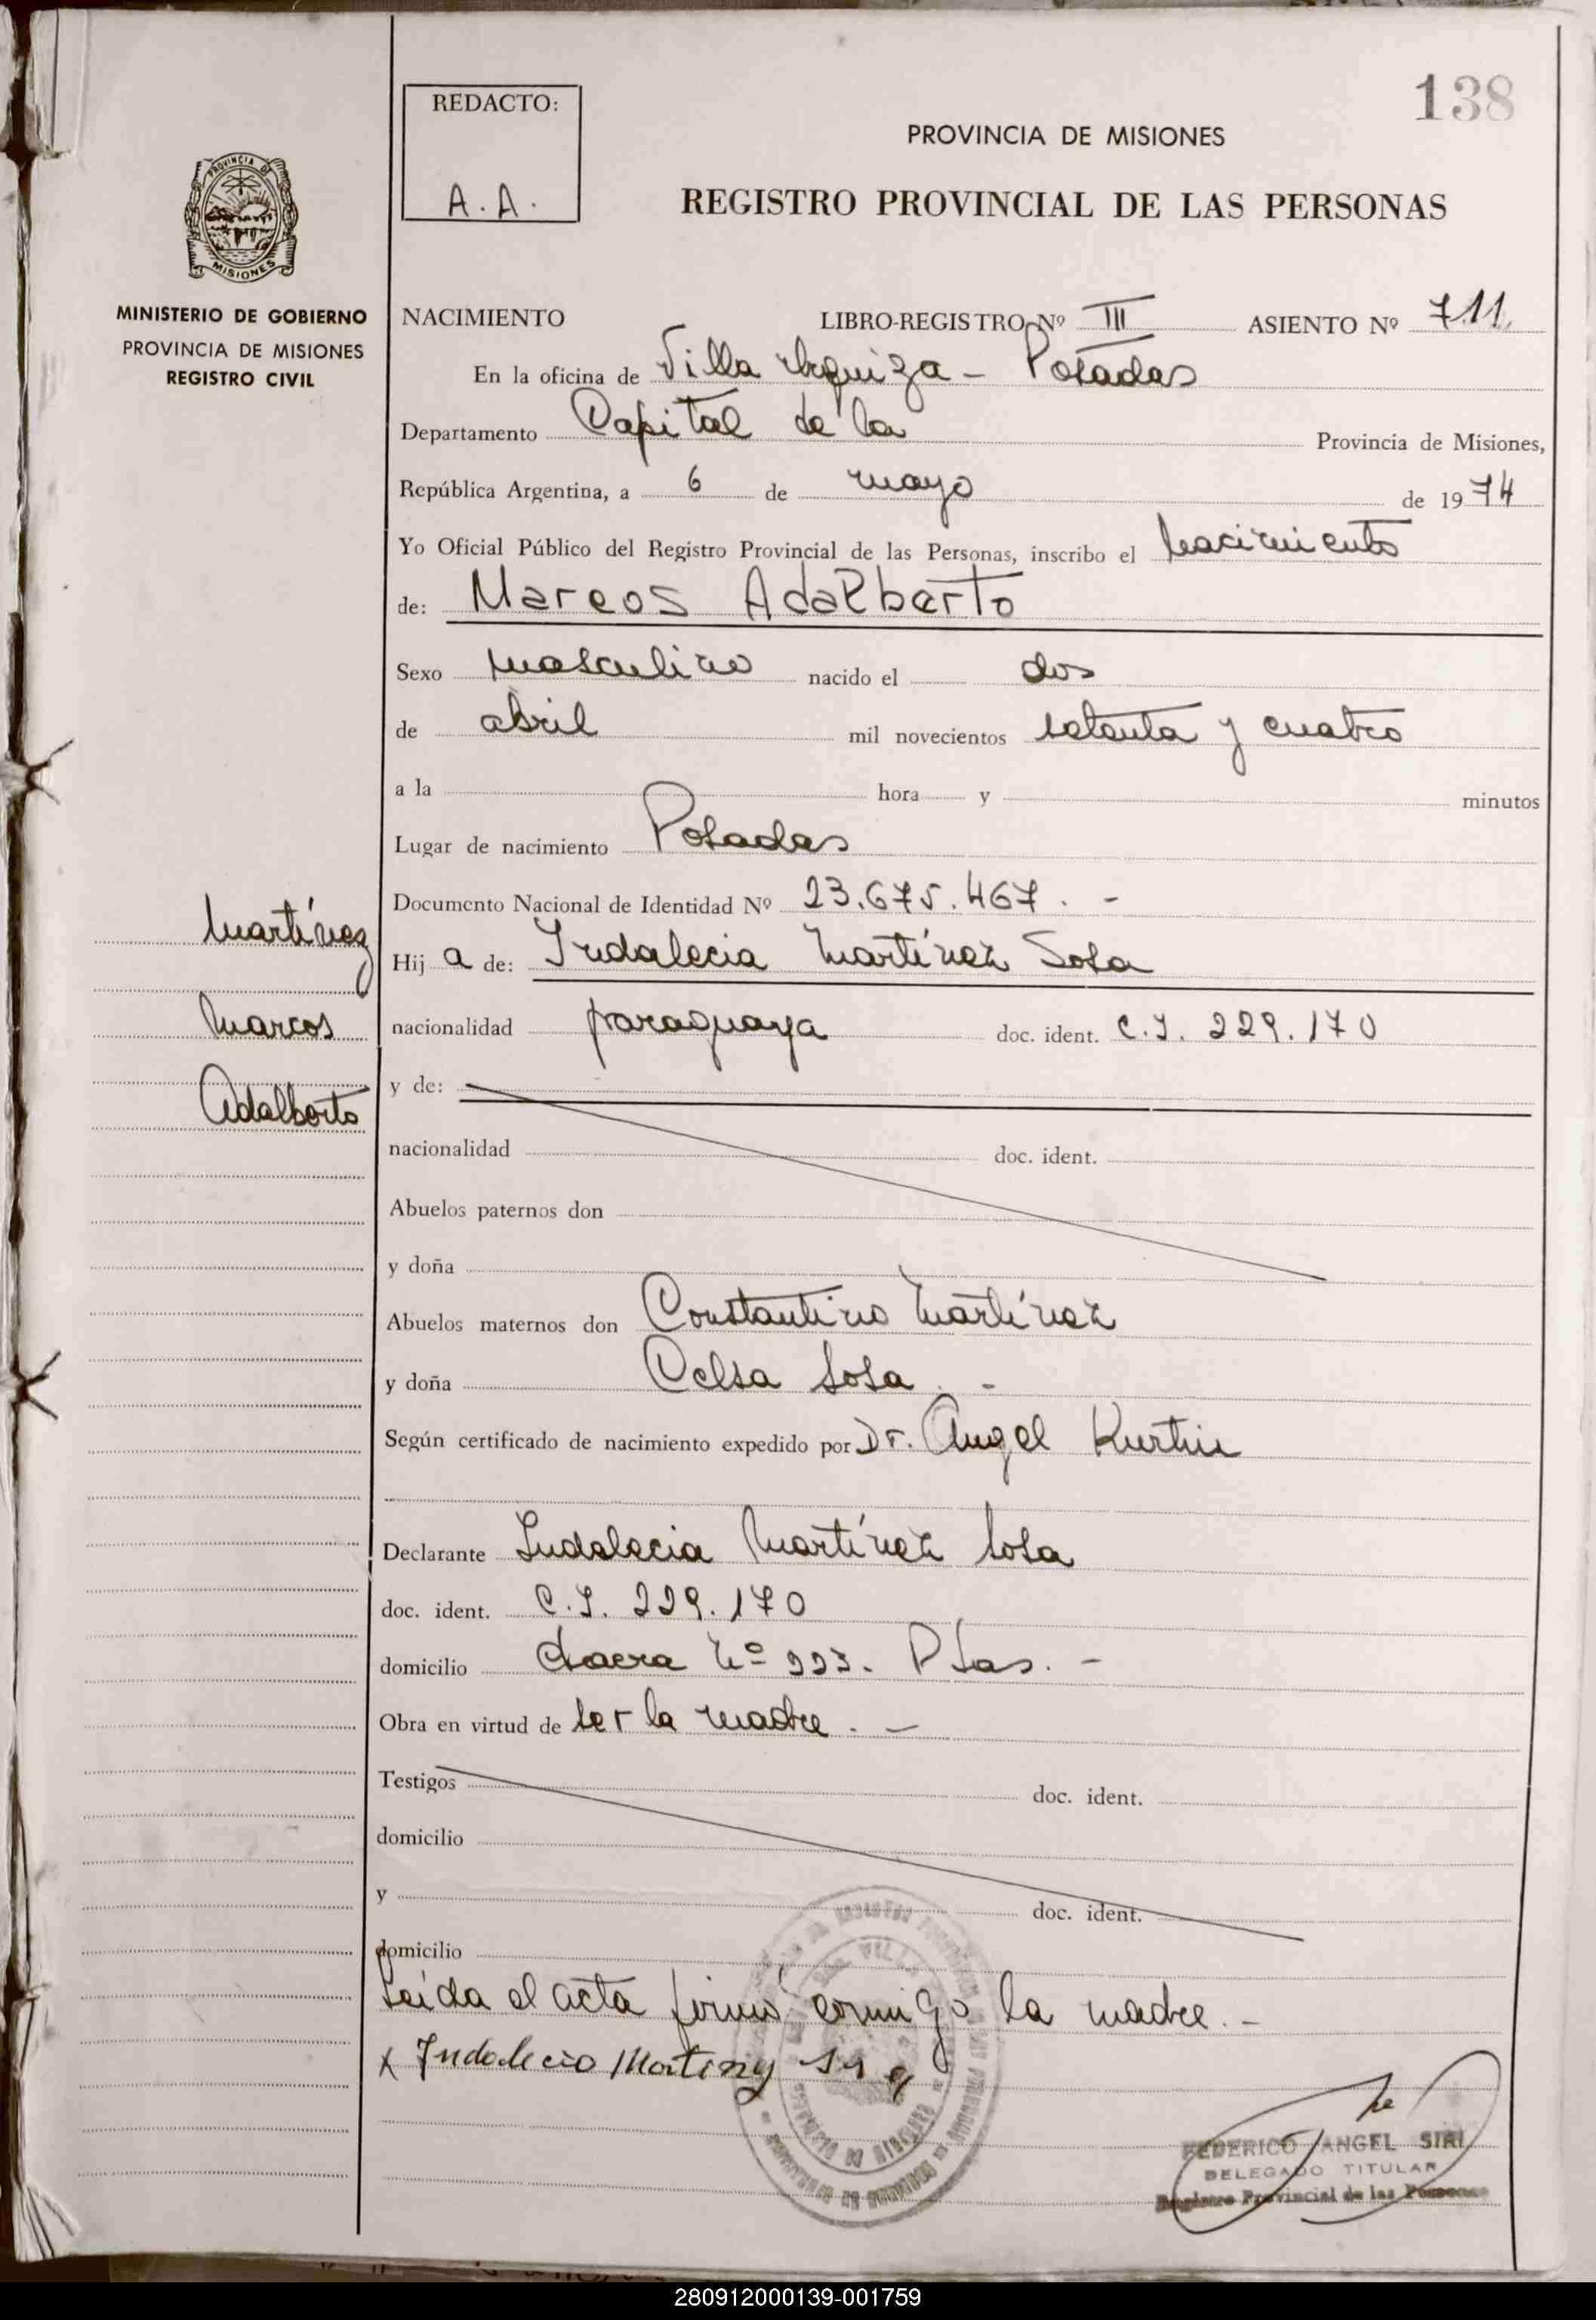 138
REDACTO:
A.A.
PROVINCIA DE MISIONES
REGISTRO PROVINCIAL DE LAS PERSONAS
PROVINCIA DE
MISIONES
MINISTERIO DE GOBIERNO
PROVINCIA DE MISIONES
REGISTRO CIVIL
NACIMIENTO LIBRO-REGISTRO Nº III ASIENTO Nº 711
En la oficina de Villa Urquiza - Posadas
Departamento Capital de la Provincia de Misiones,
República Argentina, a 6 de mayo de 1974
Yo Oficial Público del Registro Provincial de las Personas, inscribo el nacimiento
de: Marcos Adalberto
Sexo masculino nacido el dos
de abril mil novecientos setenta y cuatro
a la hora y minutos
Lugar de nacimiento Posadas
Documento Nacional de Identidad Nº 23.675.467. -
Martínez
Marcos
Adalberto
Hij a de: Indalecia Martínez Sosa
nacionalidad paraguaya doc. ident. C.I. 229.170
y de:
nacionalidad doc. ident.
Abuelos paternos don
y doña
Abuelos maternos don Constantino Martínez
y doña Celsa Sosa. -
Según certificado de nacimiento expedido por Dr. Angel Kurtin
Declarante Indalecia Martínez Sosa
doc. ident. C.I. 229.170
domicilio chacra Nº 223. Psas. -
Obra en virtud de ser la madre. -
Testigos doc. ident.
domicilio
y doc. ident.
domicilio
Leída el acta firmó conmigo la madre. -
x Indalecia Martinez
FEDERICO ANGEL SIRI
DELEGADO TITULAR
Registro Provincial de las Personas
280912000139-001759